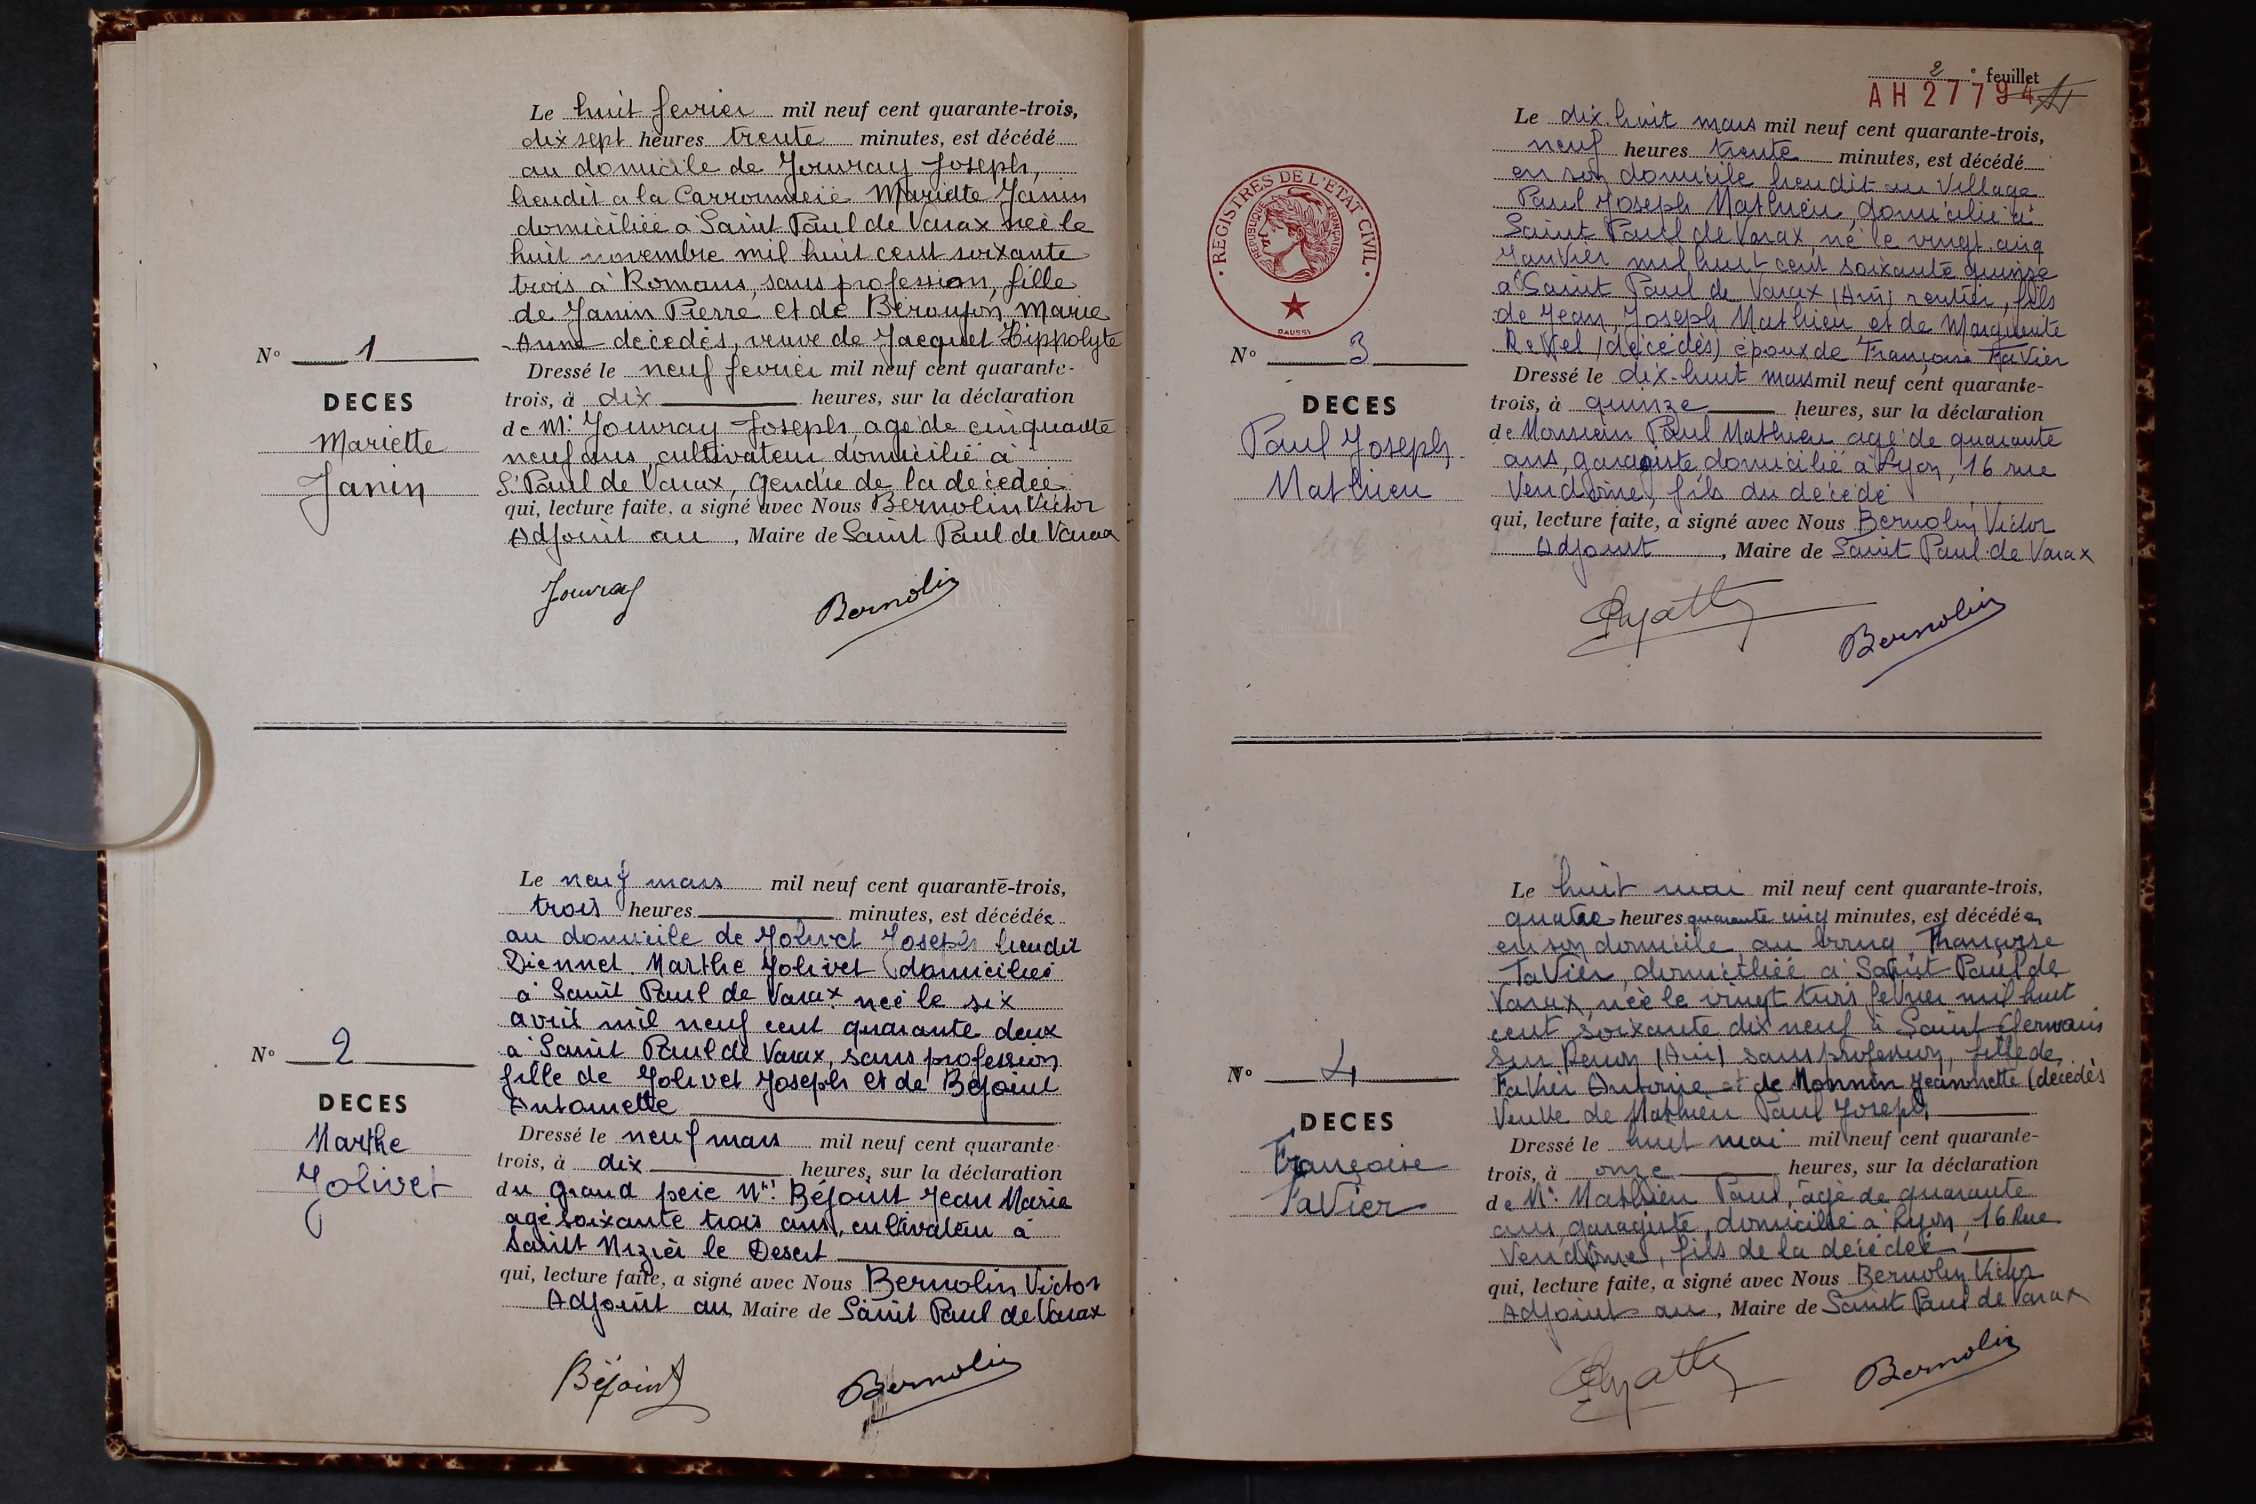 Le huit fevrier mil neuf cent quarante-trois,
dix sept heures trente minutes, est décédé
au domicile de Jouvray Joseph,
lieudit a la Carronnerie Mariette Janin
domiciliée a Saint Paul de Varax neè le
huit novembre mil huit cent soixante
trois à Romans, sans profession, fille
de Janin Pierre et de Béroujon Marie
Anne decedés, veuve de Jacquet Hippolyte
Nº 1
DECES
Mariette
Janin
Dressé le neuf fevrier mil neuf cent quarante-
trois, à dix heures, sur la déclaration
de Mr Jouvray Joseph, agé de cinquante
neuf ans, cultivateur domicilié à
St Paul de Varax, Gendre de la decedée
qui, lecture faite, a signé avec Nous Bernolin Victor
Adjoint au, Maire de Saint Paul de Varax
Jouvray Bernolin
Le neuf mars mil neuf cent quarante-trois,
trois heures minutes, est décédée
au domicile de Jolivet Joseph lieudit
Diennet Marthe Jolivet domiciliée
à Saint Paul de Varax neè le six
avril mil neuf cent quarante deux
à Saint Paul de Varax, sans profession
fille de Jolivet Joseph et de Béjoint
Antoinette
Nº 2
DECES
Marthe
Jolivet
Dressé le neuf mars mil neuf cent quarante-
trois, à dix heures, sur la déclaration
du grand père Mr Béjoint Jean Marie
agé soixante trois ans, cultivateur à
Saint Nizier le Desert
qui, lecture faite, a signé avec Nous Bernolin Victor
Adjoint au, Maire de Saint Paul de Varax
Béjoint Bernolin
2e feuillet
AH 27794
REGISTRES DE L'ETAT CIVIL
REPUBLIQUE FRANÇAISE
DAUSSI
Le dix-huit mars mil neuf cent quarante-trois,
neuf heures trente minutes, est décédé
en son domicile lieudit au Village
Paul Joseph Mathieu, domicilié à
Saint Paul de Varax, né le vingt cinq
Janvier mil huit cent soixante quinze
à Saint Paul de Varax (Ain) rentier, fils
de Jean Joseph Mathieu et de Marguerite
Revel (décédés) époux de Françoise FaVier
Nº 3
DECES
Paul Joseph
Mathieu
Dressé le dix-huit mars mil neuf cent quarante-
trois, à quinze heures, sur la déclaration
de Monsieur Paul Mathieu agé de quarante
ans, garagiste domicilié à Lyon, 16 rue
Vendôme, fils du décédé
qui, lecture faite, a signé avec Nous Bernolin Victor
Adjoint, Maire de Saint Paul de Varax
Bernolin
Le huit mai mil neuf cent quarante-trois,
quatre heures quarante cinq minutes, est décédée
en son domicile au bourg Françoise
FaVier, domiciliée à Saint Paul de
Varax, née le vingt trois fevrier mil huit
cent soixante dix neuf à Saint Germain
Sur Renon (Ain) sans profession, fille de
FaVier Antoine et de Monnin Jeannette (decédés
Veuve de Mathieu Paul Joseph
Nº 4
DECES
Françoise
FaVier
Dressé le huit mai mil neuf cent quarante-
trois, à onze heures, sur la déclaration
de Mr Mathieu Paul, agé de quarante
ans, garagiste, domicilié à Lyon, 16 Rue
Vendôme, fils de la décédée
qui, lecture faite, a signé avec Nous Bernolin Victor
Adjoint au, Maire de Saint Paul de Varax
Bernolin